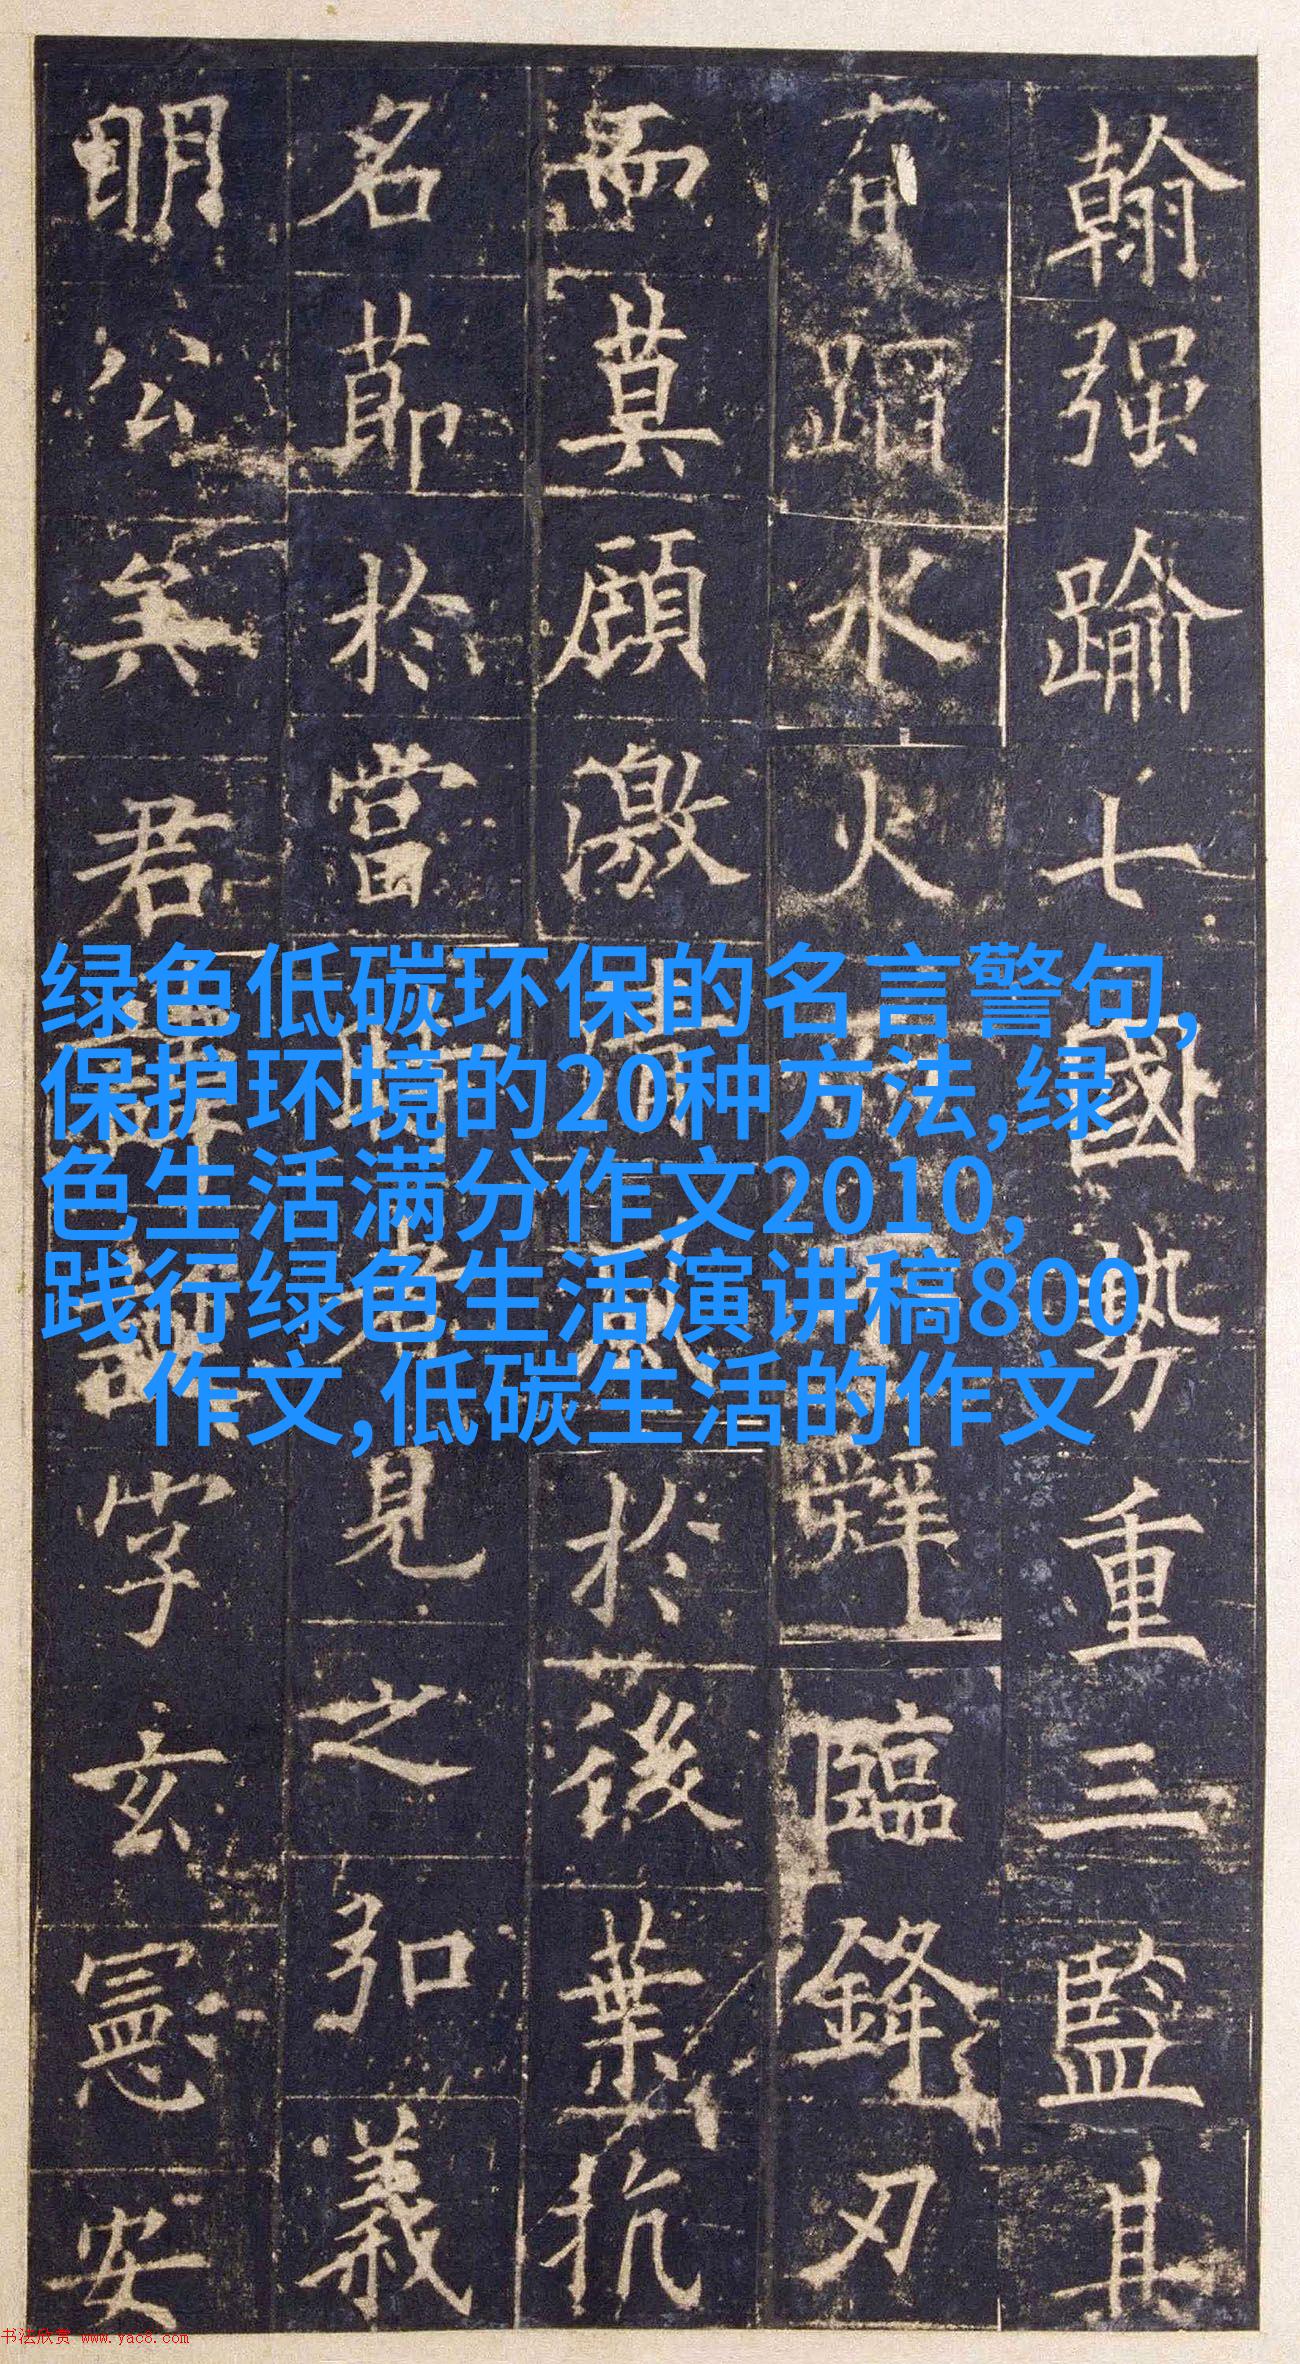 翰强踰七國勢重三監其
有蹈水火辭臨鋒刃
而莫顧激清風於後葉抗
名節於當時者見之弘義
明公矣君諱誕字玄憲安
绿色低碳环保的名言警句,
保护环境的20种方法,绿
色生活满分作文2010,
践行绿色生活演讲稿800
作文,低碳生活的作文
书法欣赏 www.yac8.com